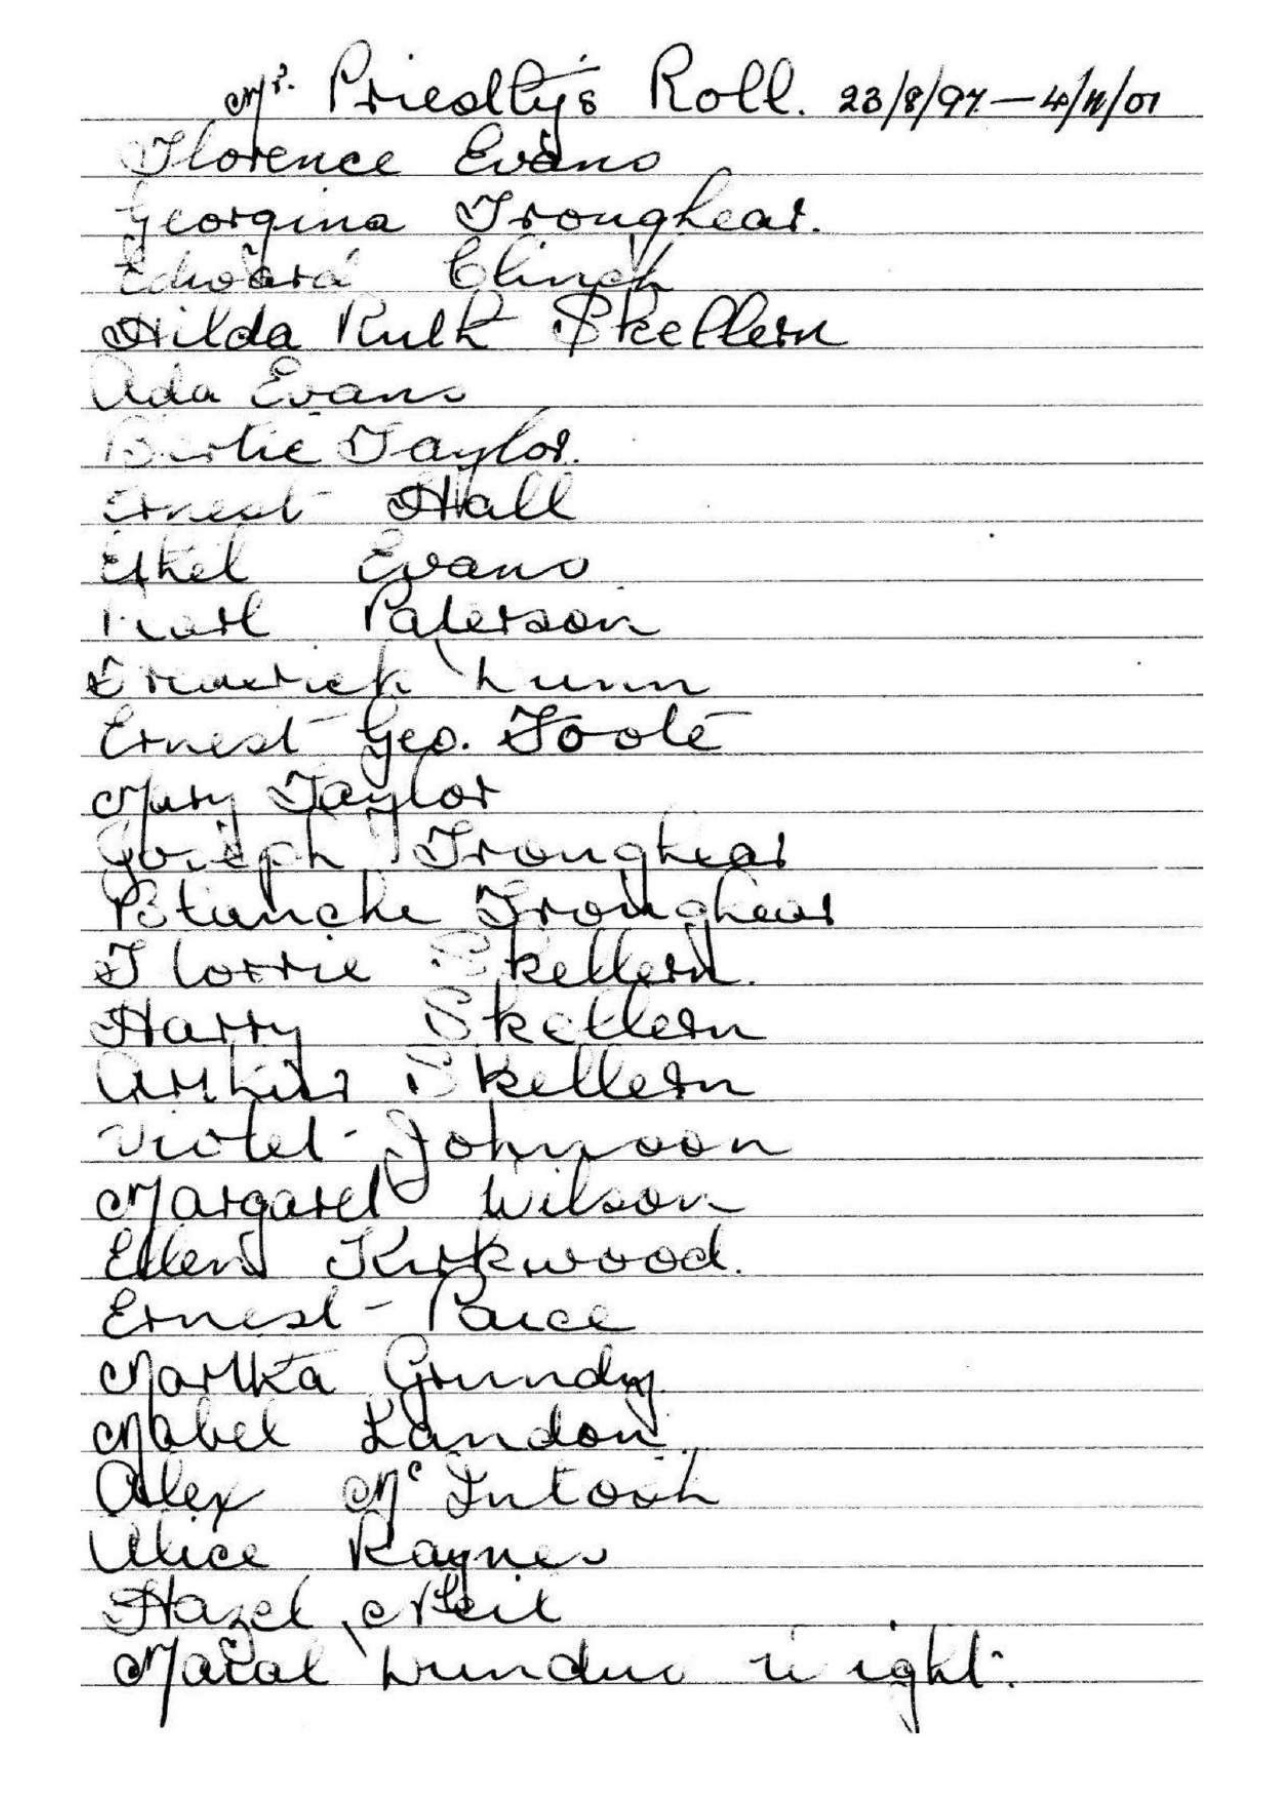 Mr. Priestly's Roll. 23/8/97 — 4/11/01
Florence Evans
Georgina Troughear.
Edward Clinch
Hilda Ruth Skellern
Ada Evans
Bertie Taylor.
Ernest Hall
Ethel Evans
Karl Paterson
Frederick Lunn
Ernest Geo. Foote
Mary Taylor
Joseph Troughear
Blanche Troughear
Florrie Skellern.
Harry Skellern
Arthur Skellern
Violet Johnson
Margaret Wilson
Ellen Kirkwood.
Ernest Paice
Martha Grundy
Mabel Landon
Alex McIntosh
Alice Raynes
Hazel Neil